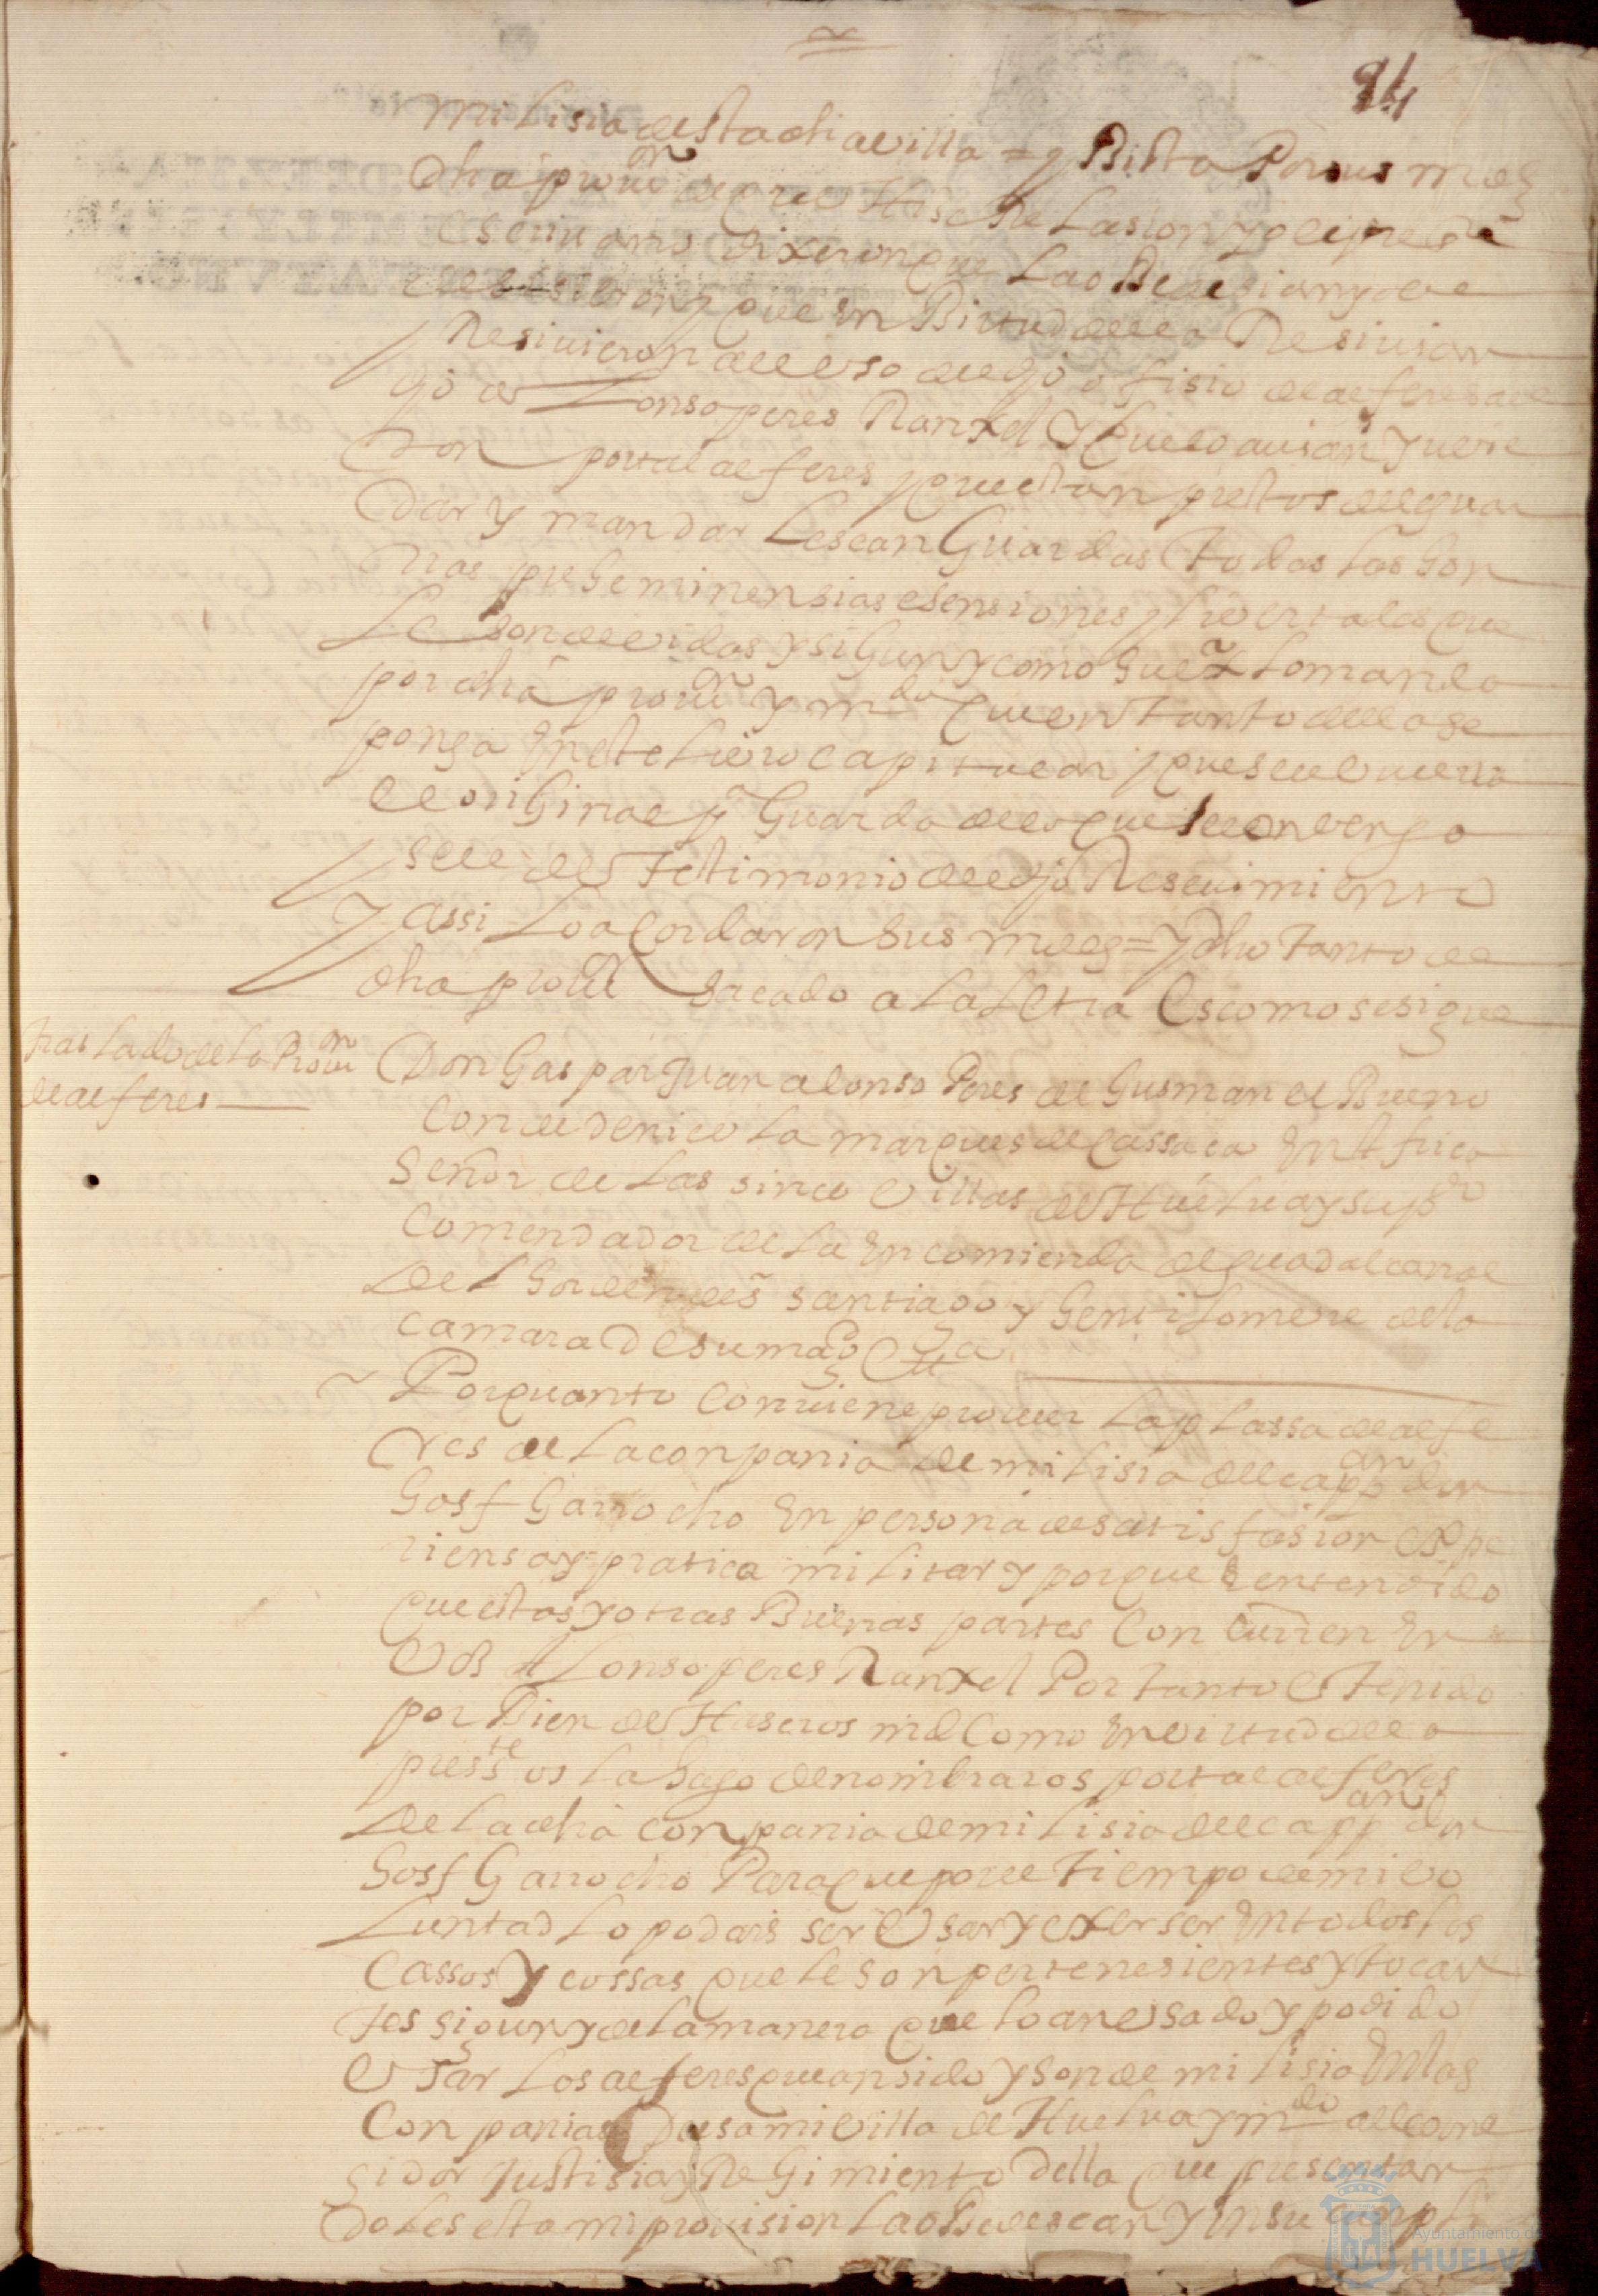 94
milisia desta dha villa = y Bista Por sus mds
dha provon de que Hise Relasion yo el preste
escrivano dixeron que la obedesian y obe
desieron y que en Birtud della Resivian
y Resivieron al uso del dho ofisio de alferes al
dho alonso peres Ranxel y que lo avian y uvie
ron por tal alferes y que estan prestos de guar
dar y mandar le sean Guardas todas las hon
rras preheminensias esensiones y livertades que
le son devidas y sigun y como Su exa lo manda
por dha provon y mdo que un tanto della se
ponga en este livro capitular y que se le vuelva
el orihinal pa Guarda de lo que le convenga
y se le de Testimonio del dho Resevimiento
y assi lo acordaron sus mds = y dho tanto de
dha provon sacado a la letra es como se sigue
traslado de la Provon
de alferes
Don Gaspar Juan alonso Peres de Gusman el Bueno
Conde de Nieвla marques de Cassasa en Africa
Señor de las sinco villas de Huelva y su pdo
Comendador de la encomienda de guadalcanal
del horden de sr santiago y Gentilomvre de la
camara de su magd etta
Porquanto conviene proveer la plassa de alfe
res de la conpania de milisia del cappan don
Josf Garrocho en persona de satisfasion espe
riensa y pratica militar y porque e entendido
que estas y otras Buenas partes concurren en
vos alonso peres Ranxel Por tanto e tenido
por Bien de Haseros md como en virtud de la
preste os la hago de nombraros por tal alferes
de la dha conpania de milisia del cappan don
Josf Garrocho Para que por el tiempo de mi vo
luntad lo podais ser usar y exerser en todos los
cassos y cossas que le son pertenesientes y tocan
tes sigun y de la manera que lo an usado y podido
usar los alferes que an sido y son de milisia en las
conpanias de sa mi villa de Huelva y mdo al corre
gidor justisia y Regimiento della que presentan
doles esta mi provision la obedescan y en su cunpli
Ayuntamiento de
HUELVA